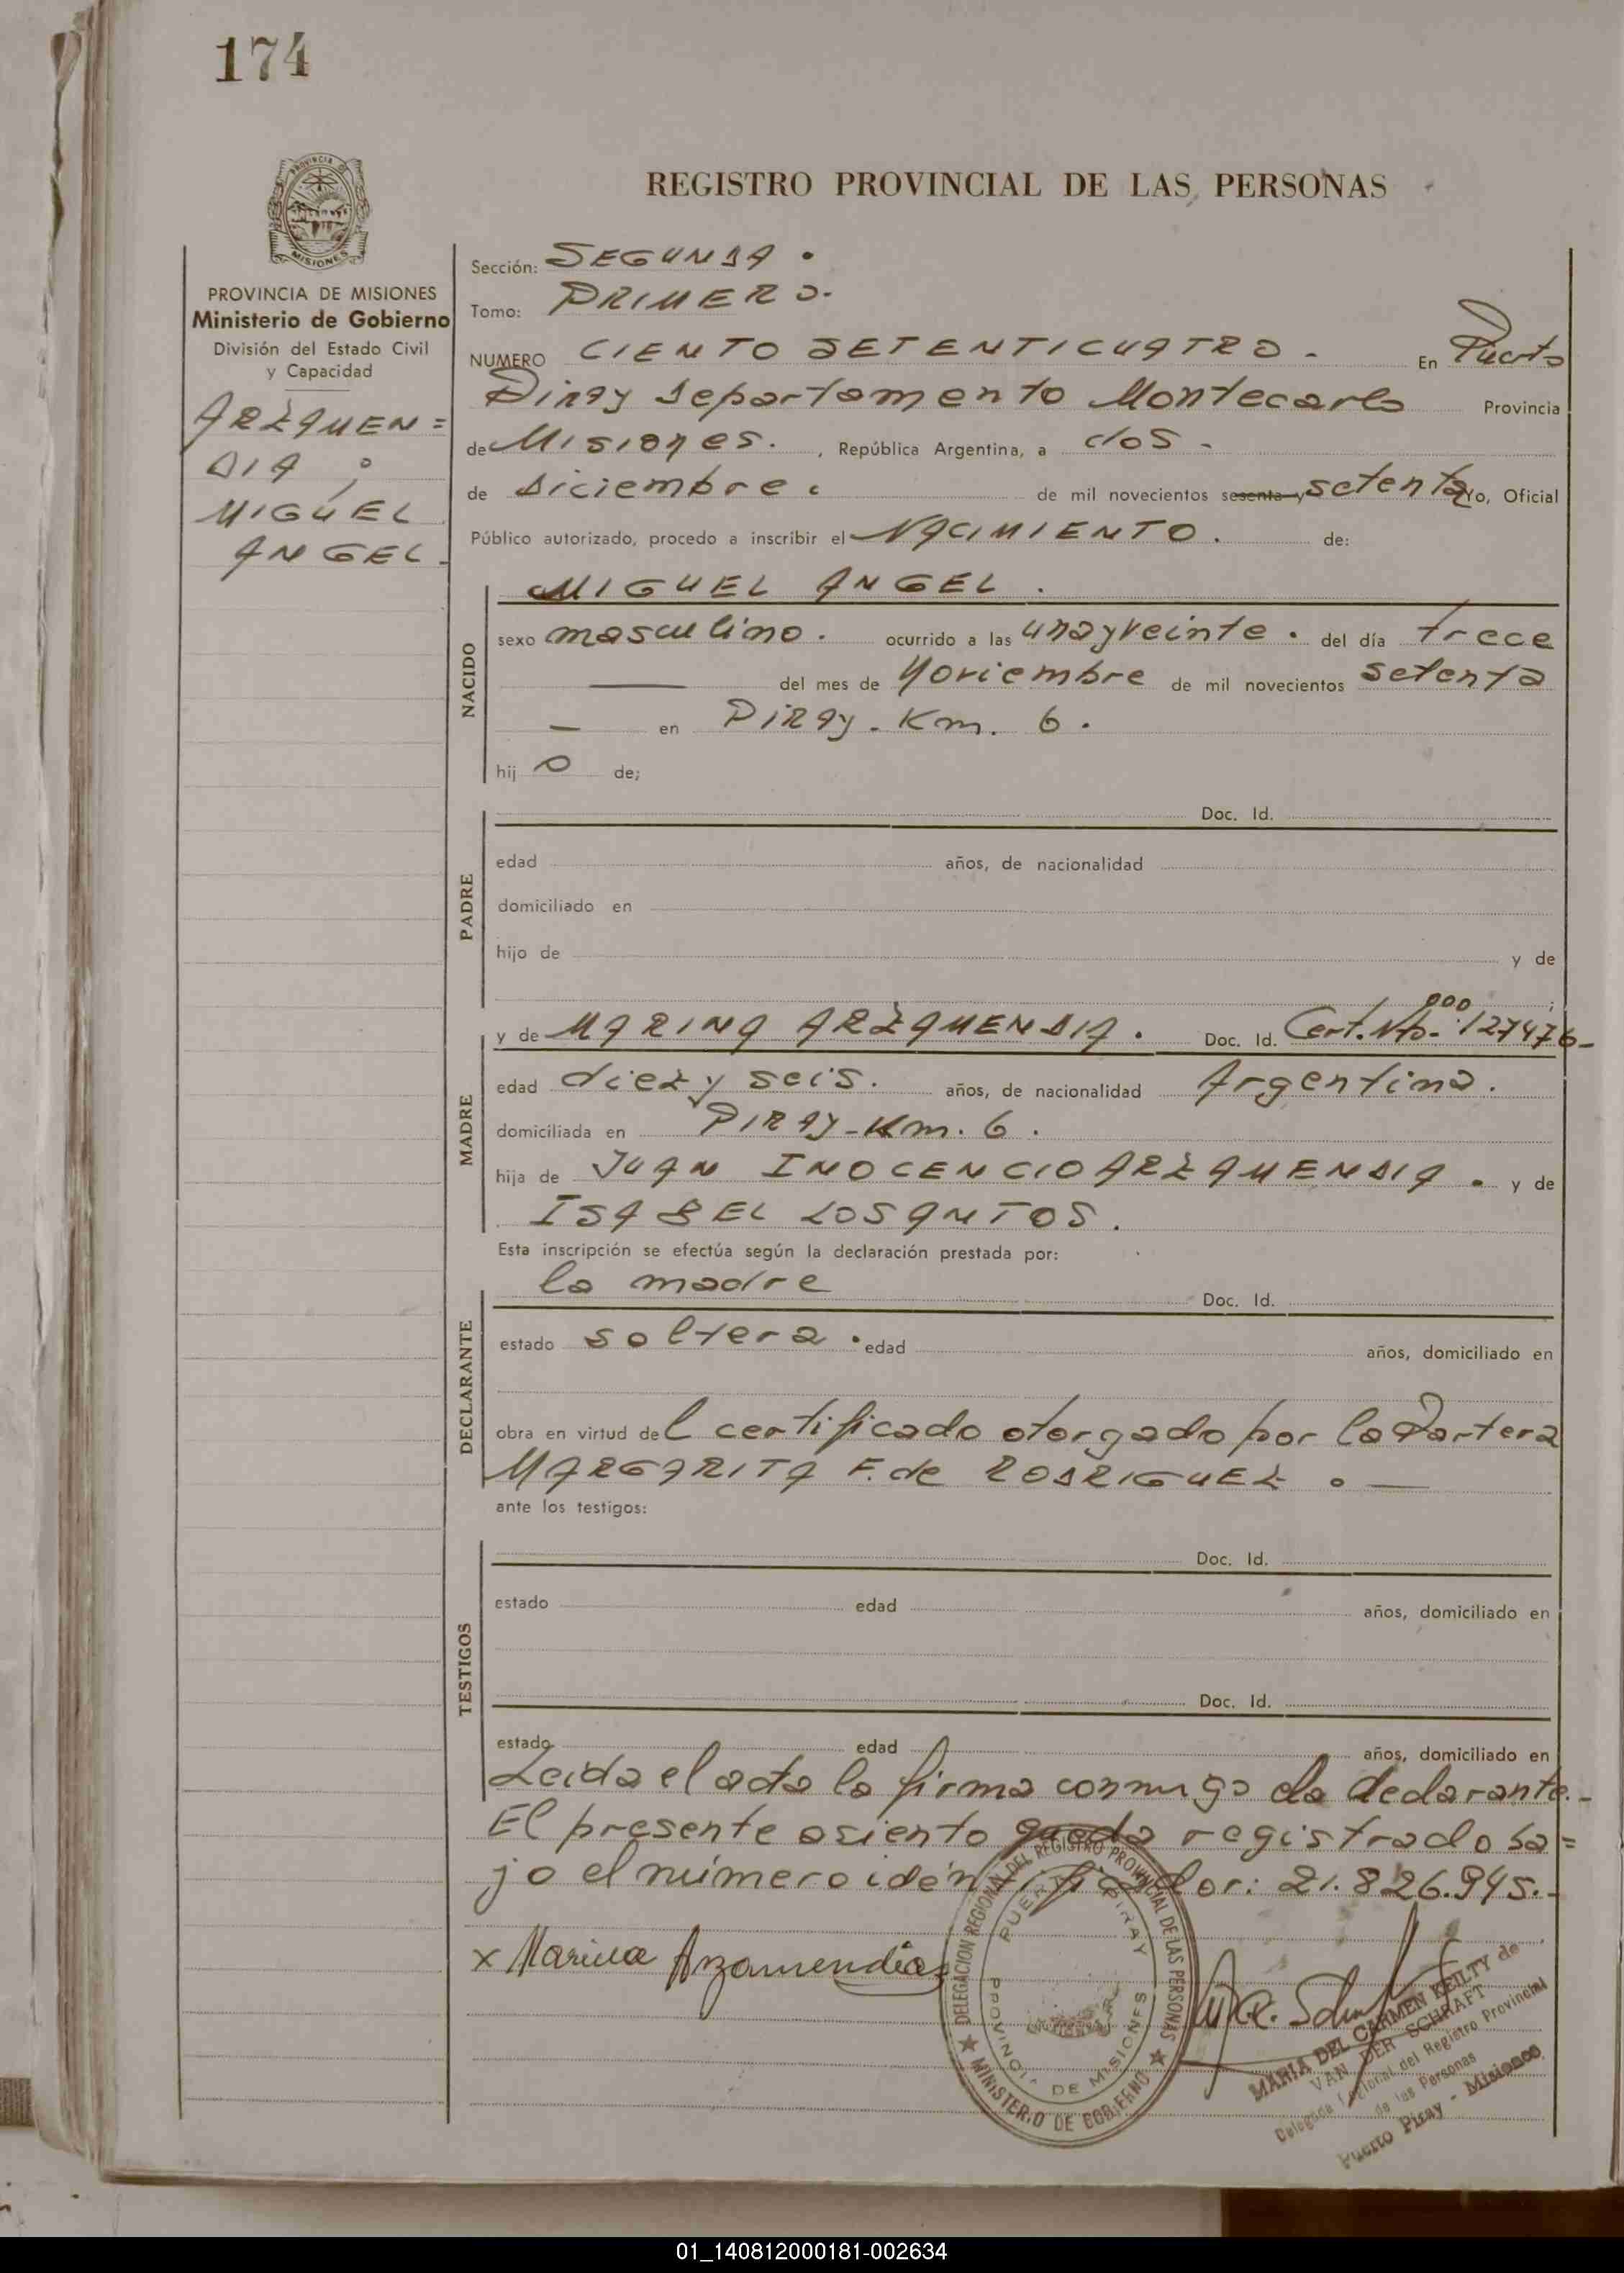 174
PROVINCIA
MISIONES
REGISTRO PROVINCIAL DE LAS PERSONAS
PROVINCIA DE MISIONES
Ministerio de Gobierno
División del Estado Civil
y Capacidad
ARZAMEN=
DIA ;
MIGUEL
ANGEL.
Sección: SEGUNDA.
Tomo: PRIMERO.
NUMERO CIENTO SETENTICUATRO. En Puerto
Piray departamento Montecarlo Provincia
de Misiones. , República Argentina, a dos -
de diciembre. de mil novecientos sesenta y setenta Yo, Oficial
Público autorizado, procedo a inscribir el NACIMIENTO. de:
MIGUEL ANGEL.
NACIDO
sexo masculino. ocurrido a las una y veinte. del día trece
— del mes de Noviembre de mil novecientos setenta
— en PIRAy - Km. 6.
hij o de;
PADRE
Doc. Id.
edad años, de nacionalidad
domiciliado en
hijo de y de
;
MADRE
y de MARINA ARZAMENDIA. Doc. Id. Cert. Nto. 127476-
edad diez y seis. años, de nacionalidad Argentina.
domiciliada en PIRAY-Km. 6.
hija de JUAN INOCENCIO ARZAMENDIA. y de
ISABEL LOSANTOS.
Esta inscripción se efectúa según la declaración prestada por:
DECLARANTE
la madre Doc. Id.
estado soltera. edad años, domiciliado en
obra en virtud del certificado otorgado por la Partera
MARGARITA F. de RODRIGUEZ. —
ante los testigos:
TESTIGOS
Doc. Id.
estado edad años, domiciliado en
Doc. Id.
estado edad años, domiciliado en
Leida el acta la firma conmigo la declarante.-
El presente asiento queda registrado ba=
jo el número idéntificador: 21.826.945.-
x Marina Arzamendia
DELEGACION REGIONAL DEL REGISTRO PROVINCIAL DE LAS PERSONAS
PUERTO PIRAY
PROVINCIA DE MISIONES
★ MINISTERIO DE GOBIERNO ★
MARIA DEL CARMEN KEILTY de
VAN DER SCHRAFT
Delegada del Registro Provincial
de las Personas
Puerto Piray - Misiones
01_140812000181-002634